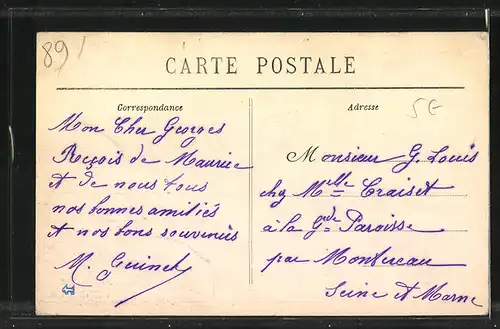 891
CARTE POSTALE
Correspondance
Adresse
5E
Mon Cher Georges
Reçois de Maurice
et de nous tous
nos bonnes amitiés
et nos bons souvenirs
M. Guinet
Monsieur G. Louis
chez Mlle Traiset
à la Gde Paroisse
par Montereau
Seine et Marne